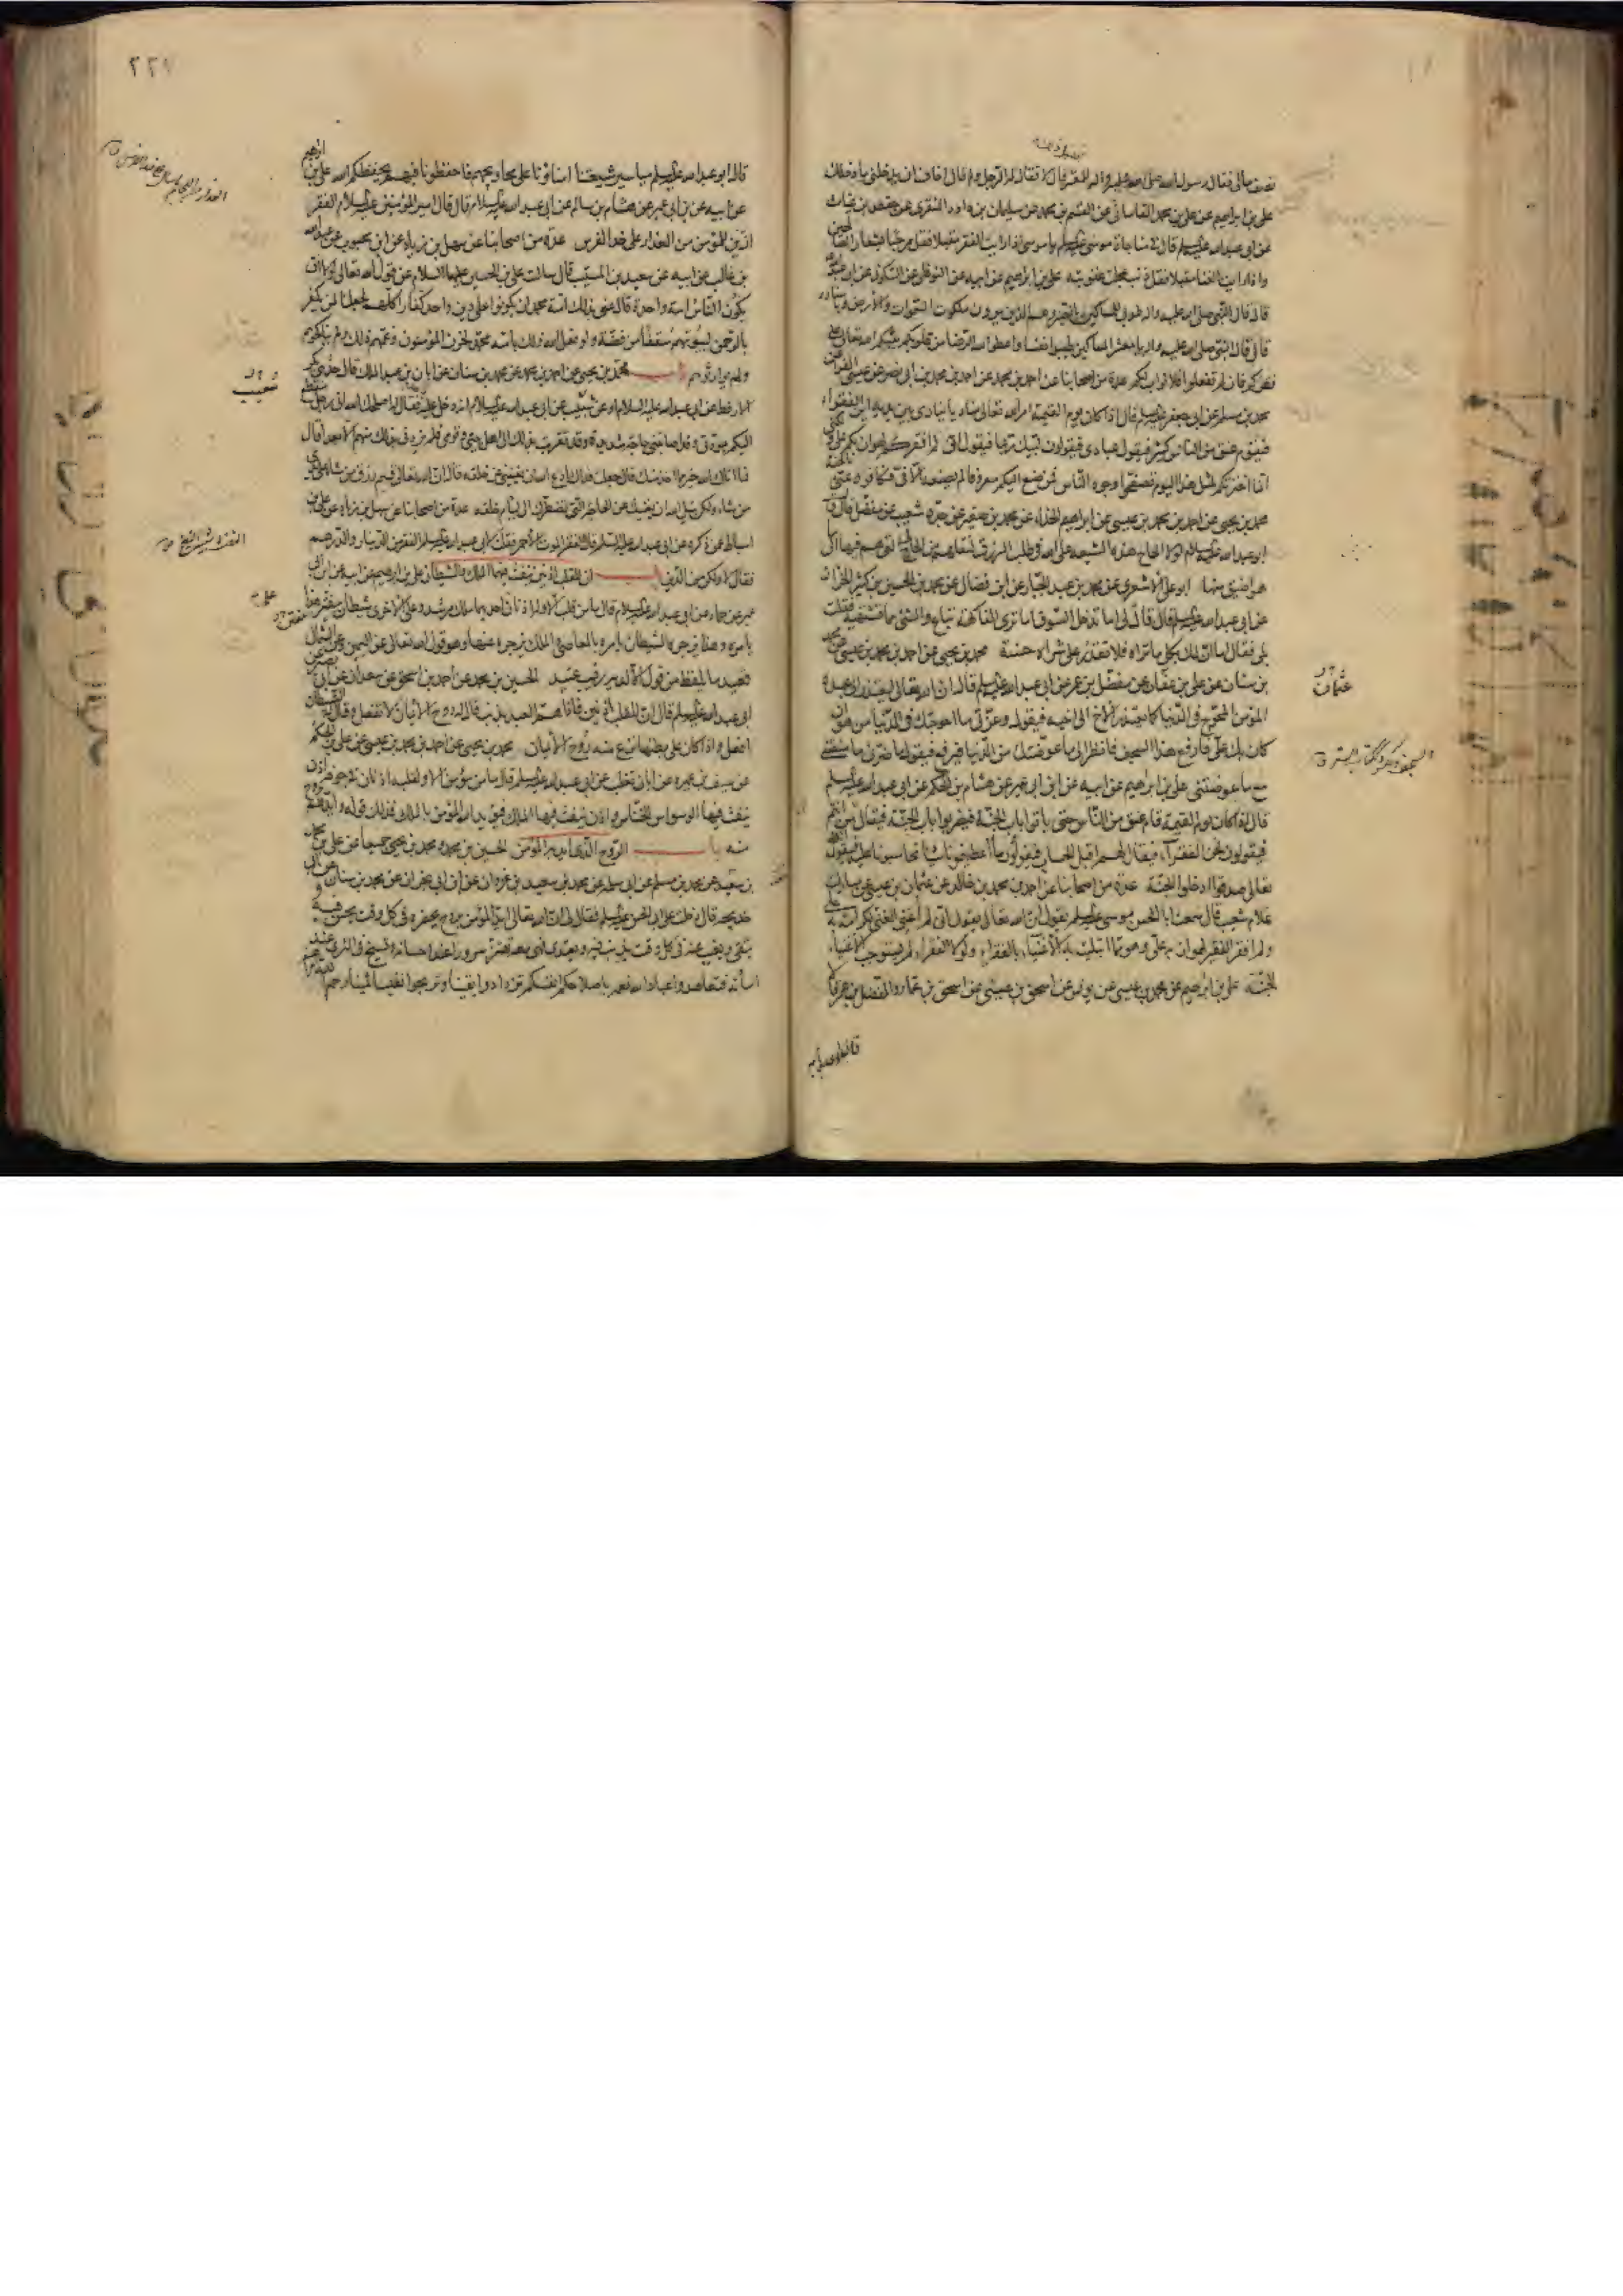 نصف مالى فقال رسول الله صلى الله عليه واله للمعسر اتقبل قال لا فقال له الرجل ولم قال اخاف ان يدخلني ما دخلك
على بن ابراهيم عن على بن محمد القاساني عن القسم بن محمد عن سليمان بن داود المنقري عن حفص بن غياث
عن ابي عبد الله عليه السلم قال في مناجاة موسى عليه السلم يا موسى اذا رايت الفقر مقبلا فقل مرحبا بشعار الصالحين
واذا رايت الغنا مقبلا فقل ذنب عجلت عقوبته على بن ابراهيم عن ابيه عن النوفلي عن السكوني عن ابي عبد الله
قال قال النبي صلى الله عليه واله طوبى للمساكين بالصبر وهم الذين يرون ملكوت السموات والارض وباسناده
قال قال النبي صلى الله عليه واله يا معشر المساكين طيبوا نفسا واعطوا الله الرضا من قلوبكم يثبكم الله تعالى على
فقركم فان لم تفعلوا فلا ثواب لكم عدة من اصحابنا عن احمد بن محمد عن احمد بن محمد بن ابي نصر عن عيسى الفراء عن
محمد بن مسلم عن ابي جعفر عليه السلم قال اذا كان يوم القيمة امر الله تعالى مناديا ينادى بين يديه اين الفقراء
فيقوم عنق من الناس كثير فيقول عبادى فيقولون لبيك ربنا فيقول انى لم افقركم لهوان بكم على ولكنى
انما اخترتكم لمثل هذا اليوم تصفحوا وجوه الناس فمن صنع اليكم معروفا لم يصنعه الا في فكافوه عنى بالجنة
محمد بن يحيى عن احمد بن محمد بن عيسى عن ابراهيم الحذاء عن محمد بن صغير عن جده شعيب عن مفضل قال قال
ابو عبد الله عليه السلم لولا الحاح هذه الشيعة على الله في طلب الرزق لنقلهم من الحال التي هم فيها الى
ما هو اضيق منها ابو على الاشعرى عن محمد بن عبد الجبار عن ابن فضال عن محمد بن الحسين بن كثير الخزاز
عن ابي عبد الله عليه السلم قال قال لى اما تدخل السوق اما ترى الفاكهة تباع والشئ مما تشتهيه فقلت
بلى فقال اما ان لك بكل ما تراه فلا تقدر على شراه حسنة محمد بن يحيى عن احمد بن محمد بن عيسى عن محمد
بن سنان عن على بن عفان عن مفضل بن عمر عن ابي عبد الله عليه السلم قال ان الله تعالى ليعتذر الى عبده
المؤمن المحوج في الدنيا كما يعتذر الاخ الى اخيه فيقول وعزتي ما احوجتك في الدنيا من هوان
كان بك على فارفع هذا السجف فانظر الى ما عوضتك من الدنيا فيرفع فيقول ما ضرني ما منعتنى
مع ما عوضتنى على بن ابراهيم عن ابيه عن ابن ابي عمير عن هشام بن الحكم عن ابي عبد الله عليه السلم
قال اذا كان يوم القيمة قام عنق من الناس حتى ياتوا باب الجنة فيضربوا باب الجنة فيقال من انتم
فيقولون نحن الفقراء فيقال لهم اقبل الحساب فيقولون ما اعطيتمونا شيئا تحاسبونا عليه فيقول الله
تعالى صدقوا ادخلوا الجنة عدة من اصحابنا عن احمد بن محمد بن خالد عن عثمان بن عيسى عن مبارك
غلام شعيب قال سمعت ابا الحسن موسى عليه السلم يقول ان الله تعالى يقول انى لم اغن الغنى لكرامة به على
ولم افقر الفقير لهوان به على وهو مما ابتليت به الاغنياء بالفقراء ولولا الفقراء لم يستوجب الاغنياء
الجنة على بن ابراهيم عن محمد بن عيسى عن يونس عن اسحق بن عيسى عن اسحق بن عمار والمفضل بن عمر قالا
عثمان
٢٢٧
قال ابو عبد الله عليه السلم مياسير شيعتنا امناؤنا على محاويجهم فاحفظونا فيهم يحفظكم الله على بن ابرهيم
عن ابيه عن ابن ابي عمير عن هشام بن سالم عن ابي عبد الله عليه السلام قال قال امير المؤمنين عليه السلام الفقر
ازين للمؤمن من العذار على خد الفرس عدة من اصحابنا عن سهل بن زياد عن ابن محبوب عن عبد الله
بن غالب عن ابيه عن سعيد بن المسيب قال سالت على بن الحسين عليهما السلام عن قول الله تعالى لولا ان
يكون الناس امة واحدة قال عنى بذلك امة محمد ان يكونوا على دين واحد كفارا كلهم لجعلنا لمن يكفر
بالرحمن لبيوتهم سقفا من فضة ولو فعل الله ذلك بامة محمد لحزن المؤمنون وغمهم ذلك ولم يناكحوهم
ولم يوارثوهم باب محمد بن يحيى عن احمد بن محمد عن محمد بن سنان عن ابان بن عبد الملك قال حدثني بكر
الارقط عن ابي عبد الله عليه السلام او عن شعيب عن ابي عبد الله عليه السلام انه دخل عليه فقال له اصلحك الله انى رجل منقطع
اليكم بمودتي وقد اصابتني حاجة شديدة وقد تقربت بذلك الى اهل بيتي وقومي فلم يزدني بذلك منهم الا بعدا قال
فما اتاك الله خير مما اخذ منك قال جعلت فداك ادع الله ان يغنيني عن خلقه قال ان الله تعالى قسم رزق من شاء على يدى
من شاء ولكن سل الله ان يغنيك عن الحاجة التي تضطرك الى لئام خلقه عدة من اصحابنا عن سهل بن زياد عن على بن
اسباط عمن ذكره عن ابي عبد الله عليه السلم قال الفقر الموت الاحمر فقلت لابي عبد الله عليه السلم الفقر من الدينار والدرهم
فقال لا ولكن من الدين باب ان للقلب اذنين ينفث فيهما الملك والشيطان على بن ابرهيم عن ابيه عن ابن ابي
عمير عن حماد عن ابي عبد الله عليه السلام قال ما من قلب الا وله اذنان على احديهما ملك مرشد وعلى الاخرى شيطان مفتن هذا
يامره وهذا يزجره الشيطان يامره بالمعاصي والملك يزجره عنها وهو قول الله تعالى عن اليمين وعن الشمال
قعيد ما يلفظ من قول الا لديه رقيب عتيد الحسين بن محمد عن احمد بن اسحق عن سعدان عن ابي بصير عن
ابي عبد الله عليه السلم قال ان للقلب اذنين فاذا هم العبد بذنب قال له روح الايمان لا تفعل وقال له الشيطان
افعل واذا كان على بطنها نزع منه روح الايمان محمد بن يحيى عن احمد بن محمد بن عيسى عن على بن الحكم
عن سيف بن عميرة عن ابان بن تغلب عن ابي عبد الله عليه السلم قال ما من مؤمن الا ولقلبه اذنان في جوفه اذن
ينفث فيها الوسواس الخناس واذن ينفث فيها الملك فيؤيد الله المؤمن بالملك فذلك قوله وايدهم بروح
منه باب الروح الذى ايد به المؤمن الحسين بن محمد ومحمد بن يحيى جميعا عن على بن محمد
بن سعد عن محمد بن مسلم عن ابي سلمة عن محمد بن سعيد بن غزوان عن ابن ابي نجران عن محمد بن سنان عن ابي
خديجة قال دخلت على ابي الحسن عليه السلم فقال لى ان الله تعالى ايد المؤمن بروح منه يحضره في كل وقت يحسن فيه و
يتقى ويغيب عنه في كل وقت يذنب فيه ويعتدى فهى معه تهتز سرورا عند احسانه وتسيخ في الثرى عند
اساءته فتعاهدوا عباد الله نعمه باصلاحكم انفسكم تزدادوا يقينا وتربحوا نفيسا ثمينا رحم الله امرأ هم
شعيب